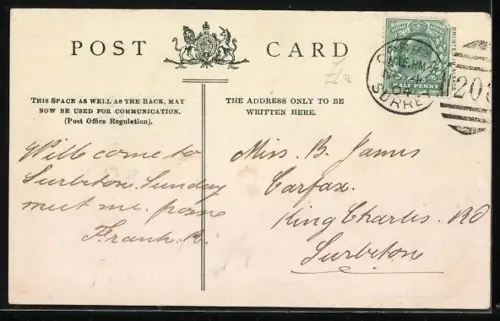 POST CARD
THIS SPACE AS WELL AS THE BACK, MAY
NOW BE USED FOR COMMUNICATION.
(Post Office Regulation).
THE ADDRESS ONLY TO BE
WRITTEN HERE.
Will come to
Surbiton Sunday
meet me
Frank
Miss. B. James
Carfax.
King Charles. RD
Surbiton
HALF PENNY
SURREY